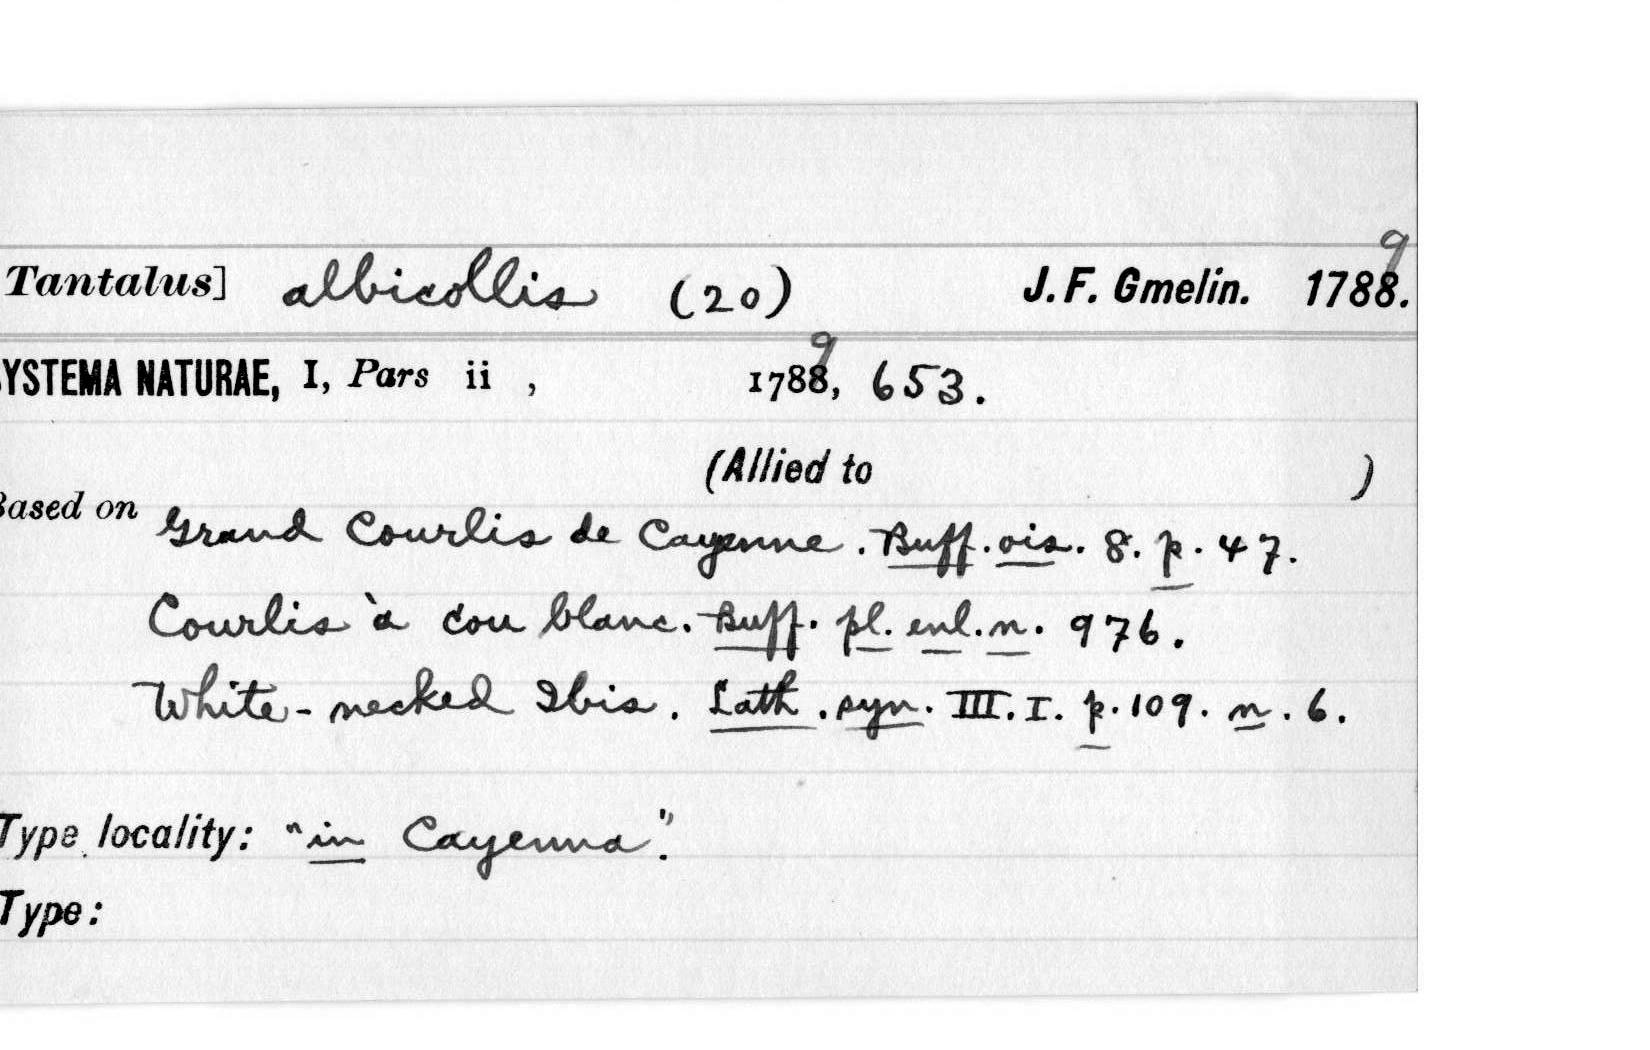 Tantalus] albicollis (20) J. F. Gmelin. 17889.
YSTEMA NATURAE, I, Pars ii , 17889, 653.
(Allied to )
Based on Grand Courlis de Cayenne. Buff. ois. 8. p. 47.
Courlis à cou blanc. Buff. pl. enl. n. 976.
White-necked Ibis. Lath. syn. III. I. p. 109. n. 6.
Type locality: "in Cayenna".
Type: